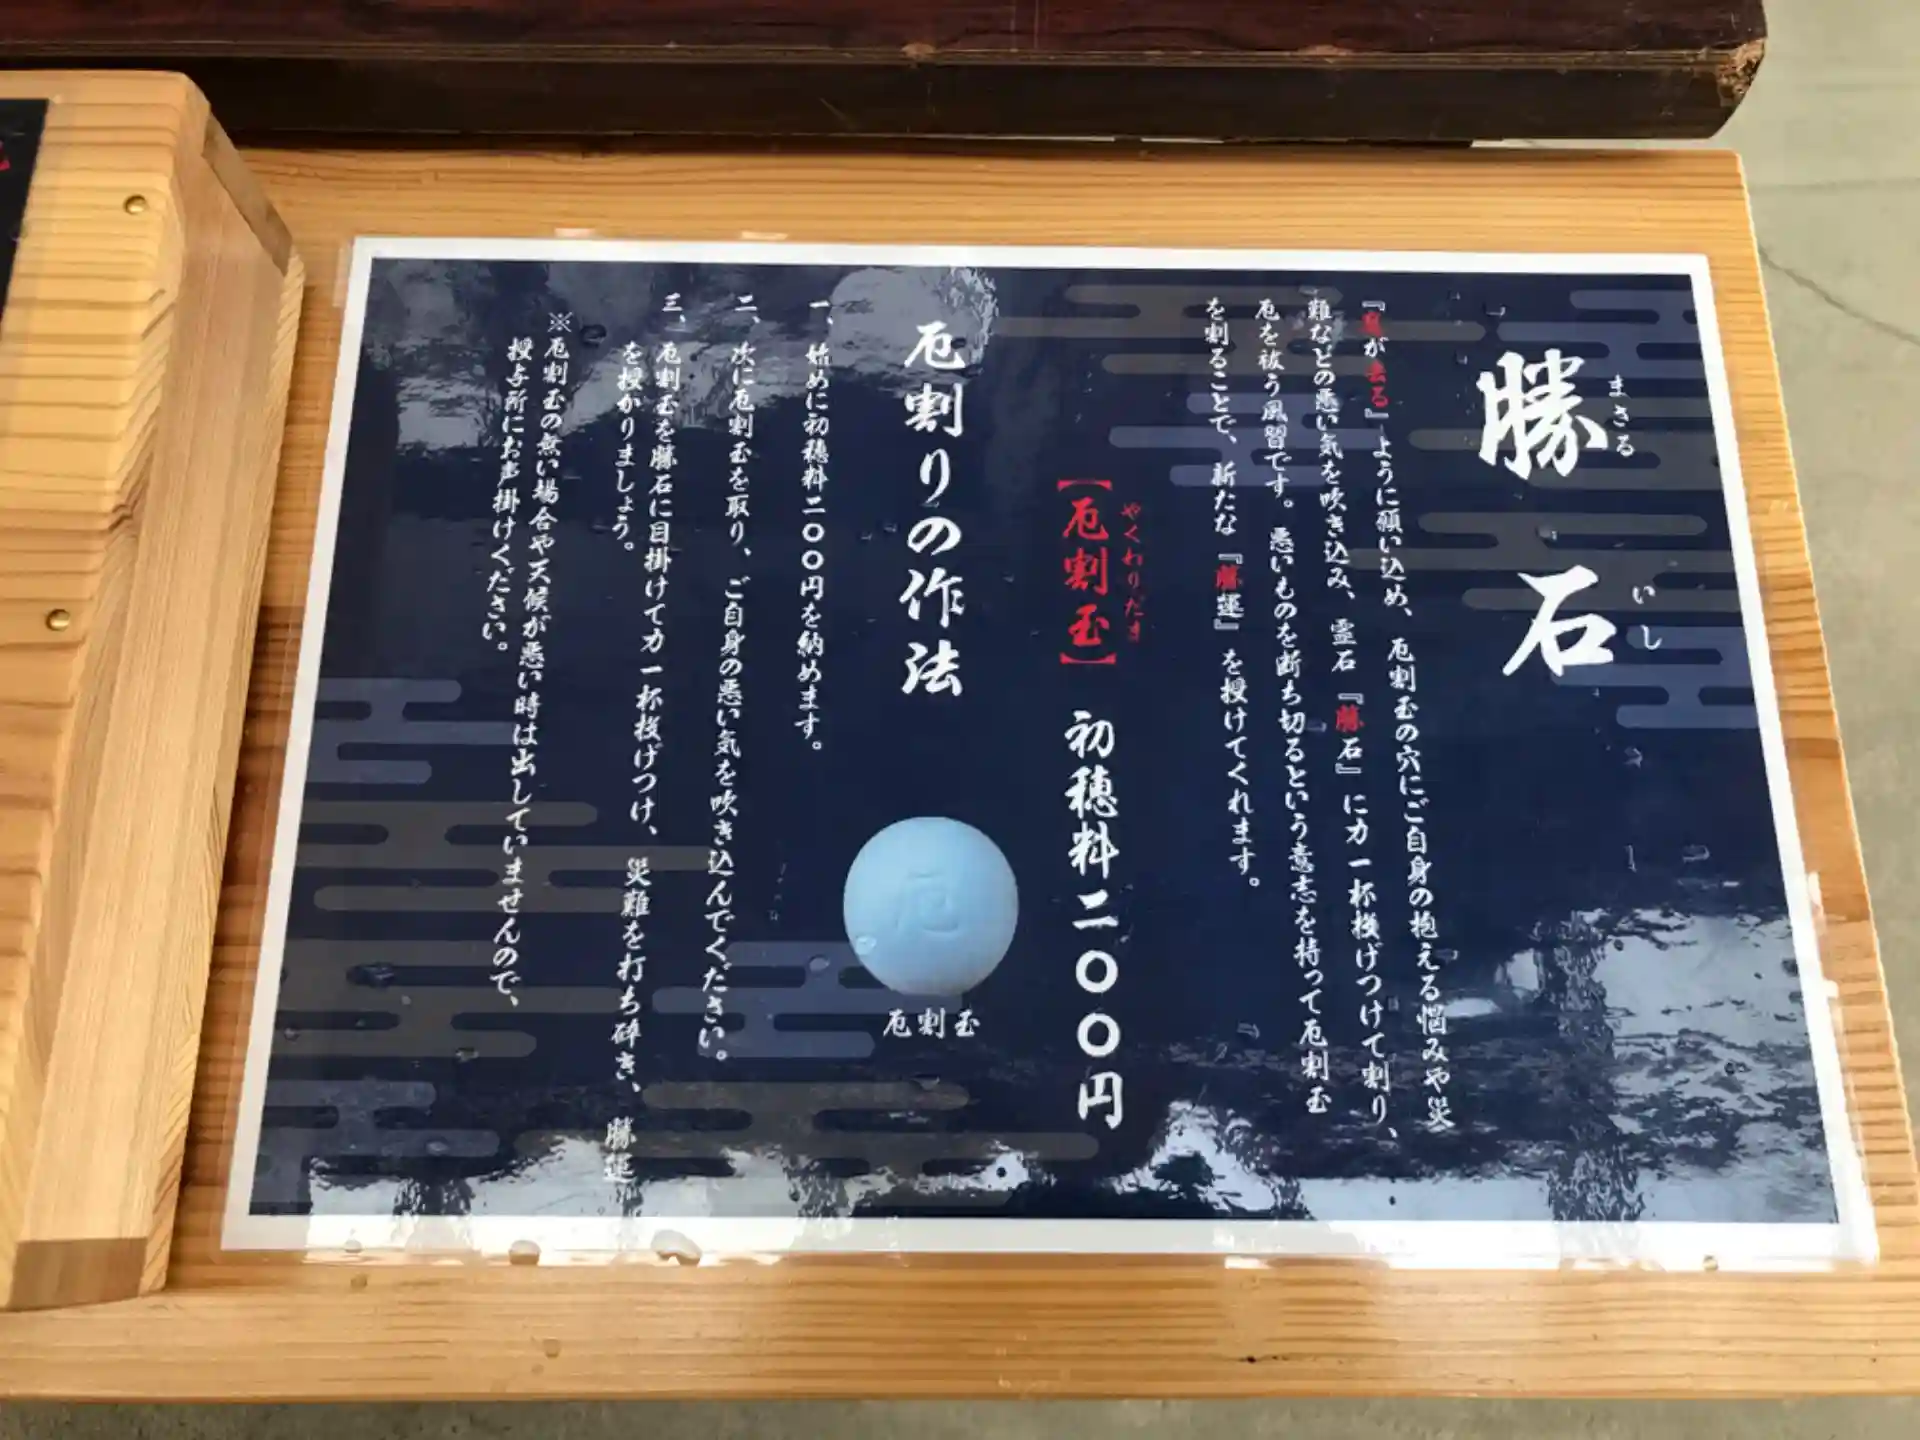 勝石
まさる いし
『魔が去る』ように願い込め、厄割玉の穴にご自身の抱える悩みや災
難などの悪い気を吹き込み、霊石『勝石』に力一杯投げつけて割り、
厄を祓う風習です。悪いものを断ち切るという意志を持って厄割玉
を割ることで、新たな『勝運』を授けてくれます。
やくわりだま
【厄割玉】初穂料二〇〇円
厄割りの作法
厄
厄割玉
一、始めに初穂料二〇〇円を納めます。
二、次に厄割玉を取り、ご自身の悪い気を吹き込んでください。
三、厄割玉を勝石に目掛けて力一杯投げつけ、災難を打ち砕き、勝運
を授かりましょう。
※厄割玉の無い場合や天候が悪い時は出していませんので、
授与所にお声掛けください。